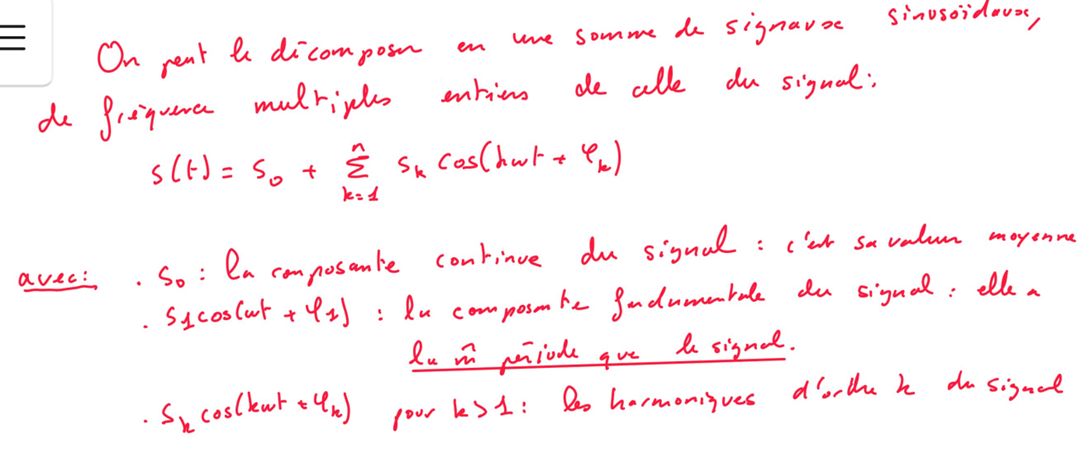 On peut le décomposer en une somme de signaux sinusoïdaux,
de fréquence multiples entiers de celle du signal :
s(t) = S₀ + Σ_{k=1}^{n} Sₖ cos(kωt + φₖ)
avec : . S₀ : la composante continue du signal : c'est sa valeur moyenne
. S₁cos(ωt + φ₁) : la composante fondamentale du signal : elle a
la m̂ période que le signal.
. Sₖ cos(kωt + φₖ) pour k > 1 : les harmoniques d'ordre k du signal